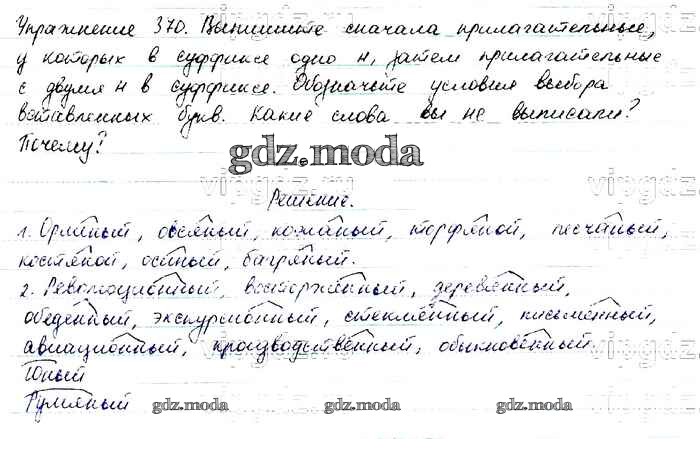 Упражнение 370. Выпишите сначала прилагательные,
у которых в суффиксе одно н, затем прилагательные
с двумя н в суффиксе. Обозначьте условия выбора
вставленных букв. Какие слова вы не выписали?
Почему?
gdz.moda
Решение.
1. Орлиный, овсяный, кожаный, торфяной, песчаный,
костяной, осиный, багряный.
2. Революционный, восторженный, деревянный,
обеденный, экскурсионный, стеклянный, письменный,
авиационный, производственный, обыкновенный.
Юный
Румяный gdz.moda gdz.moda gdz.moda